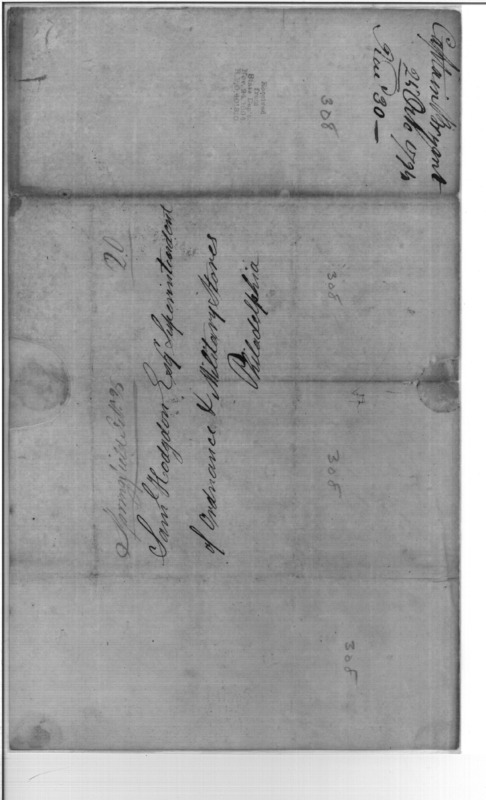 Captain Bryant
25 Octo 1793
30 —
308
Springfield
20
Saml Hodgdon Esqr Superintendent
of Ordnance & Military Stores
Philadelphia
308
308
308